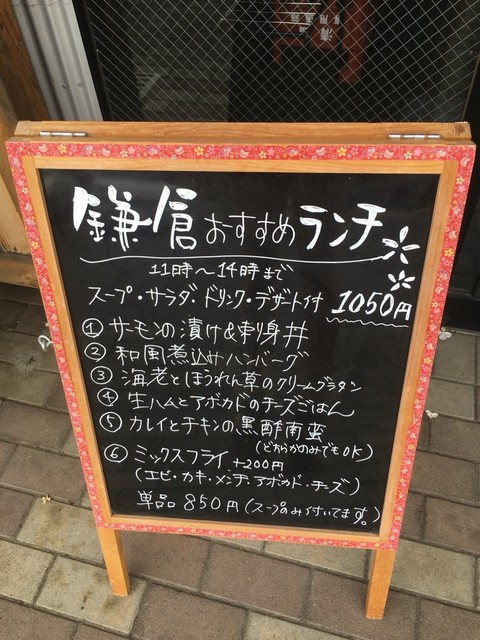 鎌倉おすすめランチ
11時〜14時まで
スープ・サラダ・ドリンク・デザート付 1050円
① サーモンの漬け&刺身丼
② 和風煮込みハンバーグ
③ 海老とほうれん草のクリームグラタン
④ 生ハムとアボカドのチーズごはん
⑤ カレイとチキンの黒酢南蛮
(どちらかのみでもOK)
⑥ ミックスフライ +200円
(エビ・カキ・メンチ・アボカド・チーズ)
単品 850円 (スープのみ付いてます。)